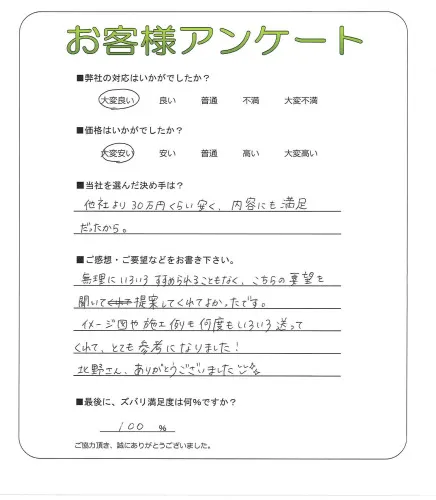 お客様アンケート
■弊社の対応はいかがでしたか？
大変良い 良い 普通 不満 大変不満
■価格はいかがでしたか？
大変安い 安い 普通 高い 大変高い
■当社を選んだ決め手は？
他社より30万円くらい安く、内容にも満足
だったから。
■ご感想・ご要望などをお書き下さい。
無理にいろいろすすめられることもなく、こちらの要望を
聞いて提案してくれてよかったです。
イメージ図や施工例も何度もいろいろ送って
くれて、とても参考になりました！
北野さん、ありがとうございました
■最後に、ズバリ満足度は何%ですか？
100 %
ご協力頂き、誠にありがとうございました。